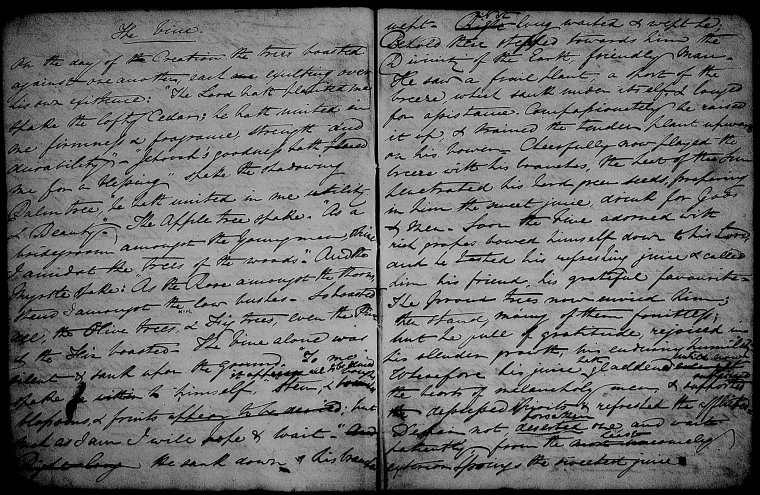 The Vine.
On the day of the Creation the trees boasted
against one another, each one exulting over
his own existence: "The Lord hath planted me
spake the lofty Cedar; he hath united in
me firmness & fragrance, strength and
durability;" "Jehovah's goodness hath placed
me for a blessing" spake the shadowing
Palm tree, "he hath united in me utility
& Beauty." The Apple tree spake. "As a
bridegroom amongst the young men, shine
I amidst the trees of the woods." And the
Myrtle spake: As the Rose amongst the thorns,
stand I amongst the low bushes. So boasted
all, the Olive trees, & Fig trees, even the
& the Fir boasted. The Vine alone was
silent & sunk upon the ground. To me
spake he to himself, Stem, &
blossoms, & fruits appear to be denied; but
such as I am I will hope & wait." And
Right long He sank down & his branches
wept. long waited & wept he,
Behold there stepped towards him the
Divinity of the Earth, friendly Man.
He saw a frail plant, a sport of the
breeze, which sunk under itself & longed
for assistance. Compassionately he raised
it up, & trained the tender plant upwards
on his bower. Cheerfully now played the
breeze with his branches, the heat of the Sun
penetrated his hard green seeds, preparing
in him the sweet juice, drink for Gods
& Men. Soon the Vine adorned with
rich grapes bowed himself down to his Lord,
and he tasted his refreshing juice & called
him his friend, his grateful favourite.
The proud trees now envied him,
then stand, many of them fruitless;
but he full of gratitude, rejoiced in
his slender growth, his enduring humility
Wherefore his juice gladdens
the hearts of melancholy men, &
the depressed spirits & refreshes the afflicted
Despair not deserted one, and wait
patiently, from the
springs the sweetest juice.